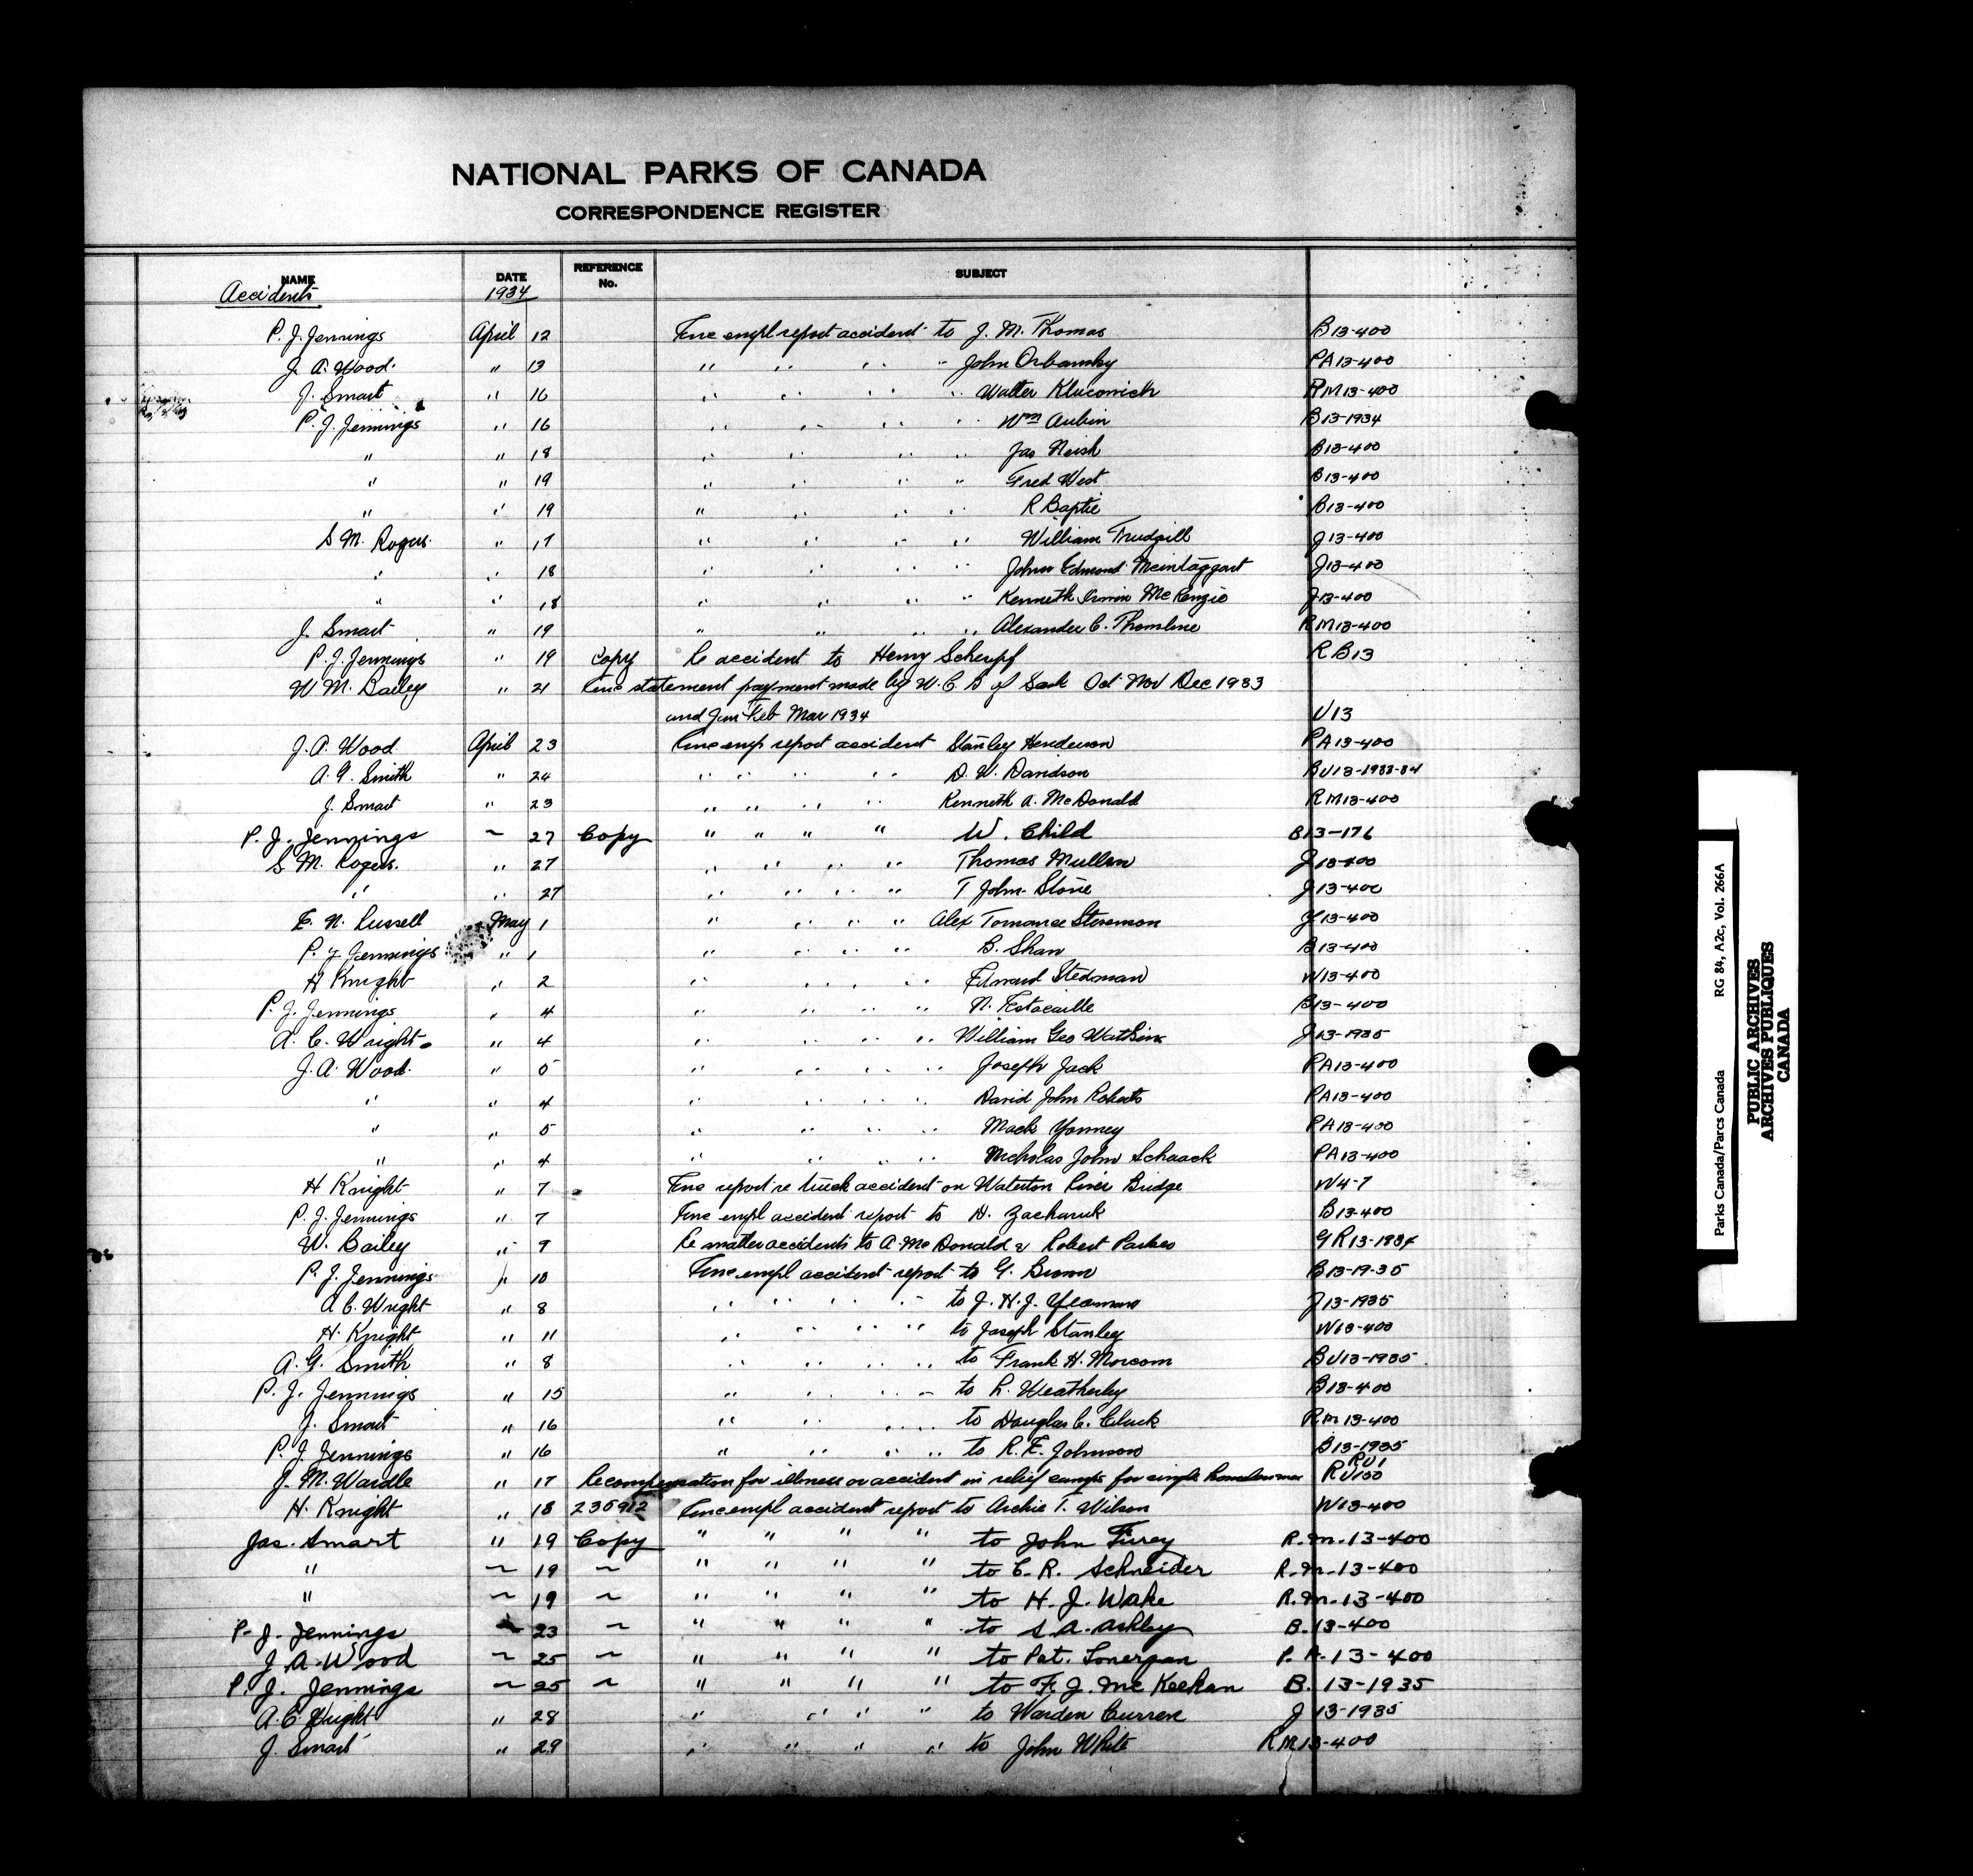 NATIONAL PARKS OF CANADA
CORRESPONDENCE REGISTER
NAME DATE REFERENCE No. SUBJECT
Accidents 1934
P. J. Jennings April 12 empl report accident to J. M. Thomas B13-400
J. A. Wood. " 13 " " " " John PA13-400
J. Smart " 16 " " " " Walter RM13-400
P. J. Jennings " 16 " " " " Wm Aubin B13-1934
" " 18 " " " " Jas Neish B13-400
" " 19 " " " " Fred West B13-400
" " 19 " " " " R Baptie B13-400
S M. Rogers " 17 " " " " William Trudgill J13-400
" " 18 " " " " John Edmond J13-400
" " 18 " " " " Kenneth McKenzie J13-400
J. Smart " 19 " " " " Alexander C. RM13-400
P. J. Jennings " 19 copy Re accident to Henry Scherpf RB13
W M. Bailey " 21 statement payment made by W. C. B of Sask Oct Nov Dec 1933
and Jan Feb Mar 1934 V13
J. A. Wood April 23 emp report accident Stanley Henderson PA13-400
A. G. Smith " 24 " " " " D. W. Davidson BU13-1933-34
J. Smart " 23 " " " " Kenneth A. McDonald RM13-400
P. J. Jennings ~ 27 Copy " " " " W. Child B13-176
S M. Rogers. " 27 " " " " Thomas Mullen J13-400
" " 27 " " " " T John Stone J13-400
E. N. Russell May 1 " " " " Alex 13-400
P. J. Jennings " 1 " " " " B. Shaw B13-400
H Knight " 2 " " " " Stedman W13-400
P. J. Jennings " 4 " " " " N. B13-400
A. C. Wright " 4 " " " " William Geo Watkins J13-1935
J. A. Wood. " 5 " " " " Joseph Jack PA13-400
" " 4 " " " " David John Roberts PA13-400
" " 5 " " " " Mack Yonney PA13-400
" " 4 " " " " Nicholas John Schaack PA13-400
H Knight " 7 report re truck accident on Waterton River Bridge W4-7
P. J. Jennings " 7 empl accident report to H. Zacharuk B13-400
W. Bailey " 9 Re matter accidents to A. McDonald & Robert Parkes GR13-1934
P. J. Jennings " 10 empl accident report to G. Brown B13-19-35
A C. Wright " 8 " " " " " to J. H. J. Yeomans J13-1935
H. Knight " 11 " " " " to Joseph Stanley W13-400
A. G. Smith " 8 " " " " to Frank H. Morcom BU13-1935
P. J. Jennings " 15 " " " " to L. Weatherley B13-400
J. Smart " 16 " " " " to Douglas C. Cluck RM13-400
P. J. Jennings " 16 " " " " to R. E. Johnson B13-1935
J. M. Wardle " 17 Re compensation for illness or accident in relief camps for single homeless men RU1 RU150
H. Knight " 18 235912 empl accident report to Archie T. Wilson W13-400
Jas. Smart " 19 Copy " " " " to John Furey R.M.13-400
" ~ 19 ~ " " " " to C. R. Schneider R.M.13-400
" ~ 19 ~ " " " " to H. J. Wake R.M.13-400
P. J. Jennings ~ 23 ~ " " " " to S. A. Ashley B.13-400
J. A. Wood ~ 25 ~ " " " " to Pat. Lonergan P.A.13-400
P. J. Jennings ~ 25 ~ " " " " to F. J. McKeehan B.13-1935
A. C. Wright " 28 " " " " to Warden Curren J13-1935
J. Smart " 29 " " " " to John White RM13-400
Parks Canada/Parcs Canada RG 84, A2c, Vol. 266A
PUBLIC ARCHIVES
ARCHIVES PUBLIQUES
CANADA